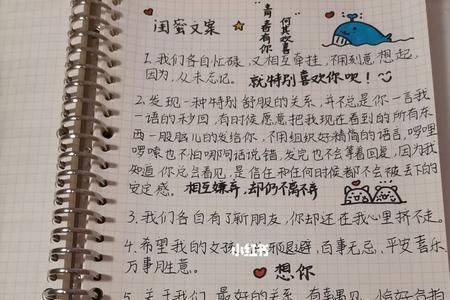 闺蜜文案
青春有你
何其欢喜
1.我们各自忙碌,又相互牵挂,不用刻意想起,
因为,从未忘记。就特别喜欢你呗!
2.发现一种特别舒服的关系,并不总是你一言我
一语的秒回,有时候愿意把我现在看到的所有东
西一股脑儿的发给你,不用组织好精简的语言,啰哩
啰嗦也不怕哪句话说错,发完也不会等着回复,因为我
知道你总会看见,是信任和任何时候都不会被丢下的
安定感。相互嫌弃,却仍不离不弃
3.我们各自有了新朋友,你却还在我心里挤不走。
4.希望我的女孩,诸邪退避,百事无忌,平安喜乐,
万事胜意。
小红书
想你
5.关于我们,最好的关系,有幸遇见,恰好合拍